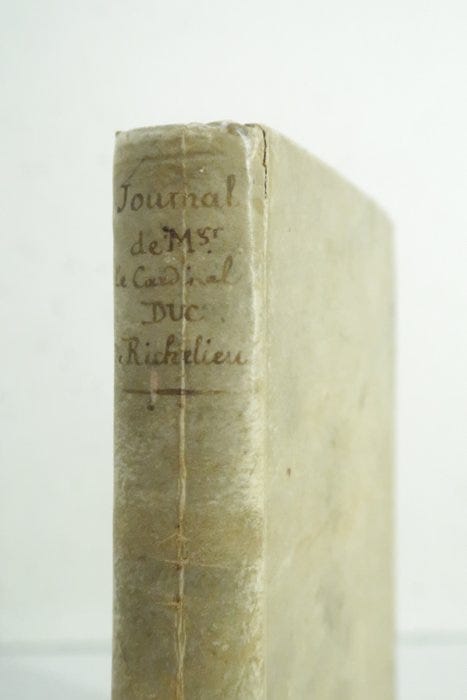 Journal
de Mgr
le Cardinal
DUC
Richelieu